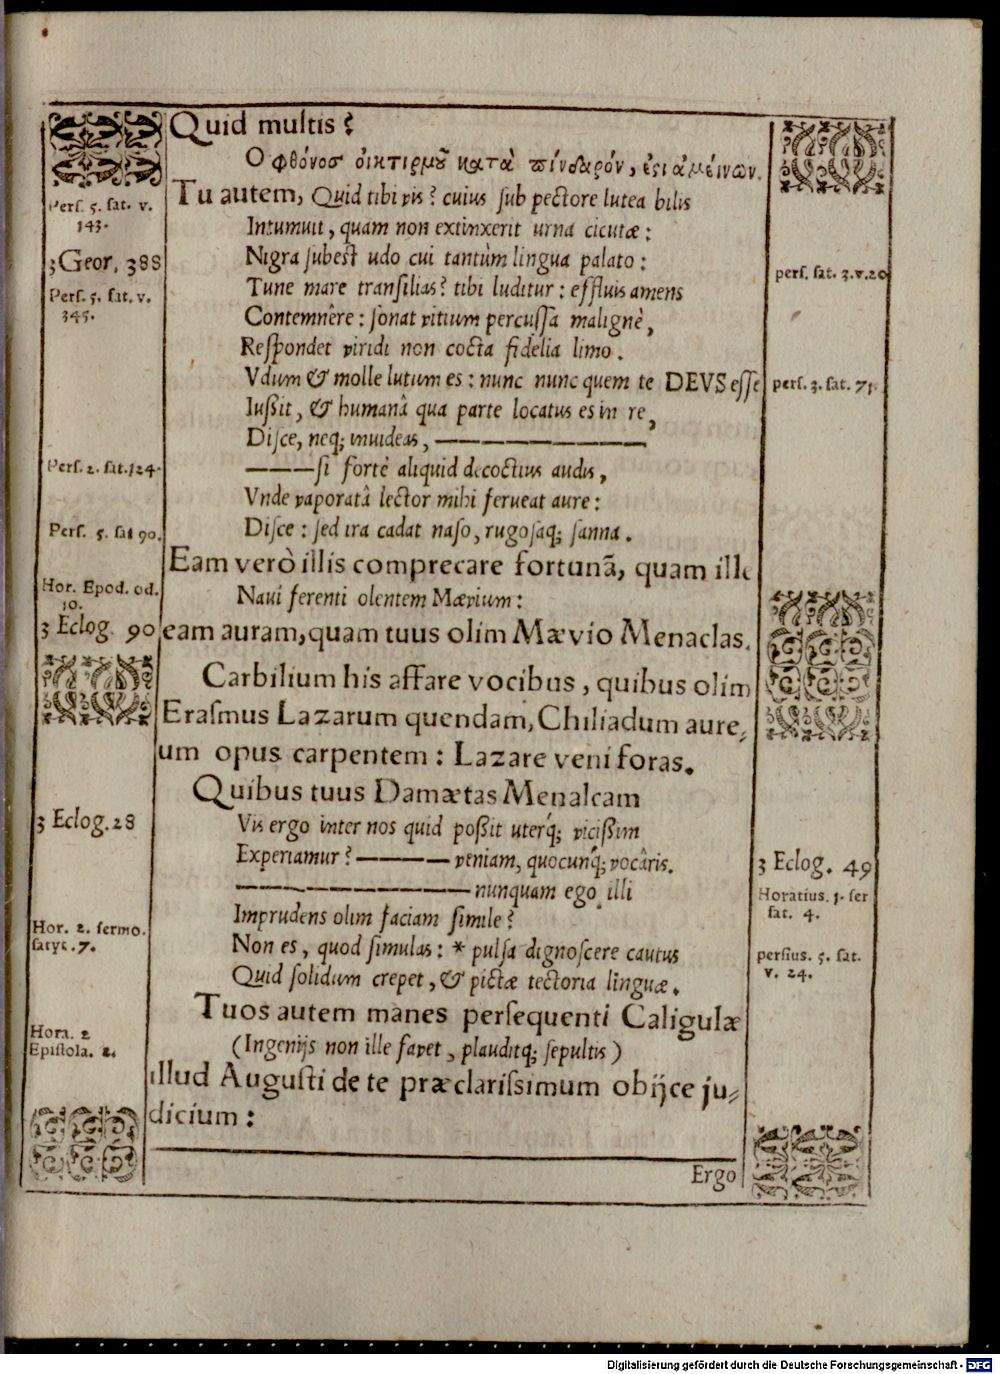 Quid multis?
Ο φθόνοσ οἰκτιρμοῦ κατὰ πίνδαρόν, ἐςι ἀμείνων.
Tu autem, Quid tibi vis? cuius sub pectore lutea bilis
Pers. 5. sat. v.
143.
Intumuit, quam non extinxerit urna cicutæ:
3 Geor. 388
Nigra subest udo cui tantùm lingua palato:
pers. sat. 3. v. 20
Pers. 5. sat. v.
345.
Tune mare transilias? tibi luditur: effluis amens
Contemnêre: sonat vitium percussa malignè,
Respondet viridi non cocta fidelia limo.
Vdum & molle lutum es: nunc nunc quem te DEVS esse
pers. 3. sat. 71.
Iußit, & humanâ qua parte locatus es in re,
Disce, neq; inuideas, ———
Pers. 2. sat. 124.
———si fortè aliquid decoctius audis,
Vnde vaporatâ lector mihi ferueat aure:
Pers. 5. sat 90.
Disce: sed ira cadat naso, rugosaq; sanna.
Eam verò illis comprecare fortunã, quam ille
Hor. Epod. od.
10.
Naui ferenti olentem Mævium:
3 Eclog. 90
eam auram, quam tuus olim Mævio Menaclas.
Carbilium his affare vocibus, quibus olim
Erasmus Lazarum quendam, Chiliadum aure⸗
um opus carpentem: Lazare veni foras.
Quibus tuus Damætas Menalcam
3 Eclog. 28
Vis ergo inter nos quid poßit uterq́; vicißim
Experiamur? ——— veniam, quocunq́; vocâris.
3 Eclog. 49
——— nunquam ego illi
Horatius. 1. ser
sat. 4.
Imprudens olim faciam simile?
Hor. 2. sermo.
satyr. 7.
Non es, quod simulas: * pulsa dignoscere cautus
persius. 5. sat.
v. 24.
Quid solidum crepet, & pictæ tectoria linguæ.
Tuos autem manes persequenti Caligulæ
Hora. 2
Epistola. 2.
(Ingenijs non ille favet, plauditq; sepultis)
illud Augusti de te præclarissimum obijce ju⸗
dicium:
Ergo
Digitalisierung gefördert durch die Deutsche Forschungsgemeinschaft - DFG